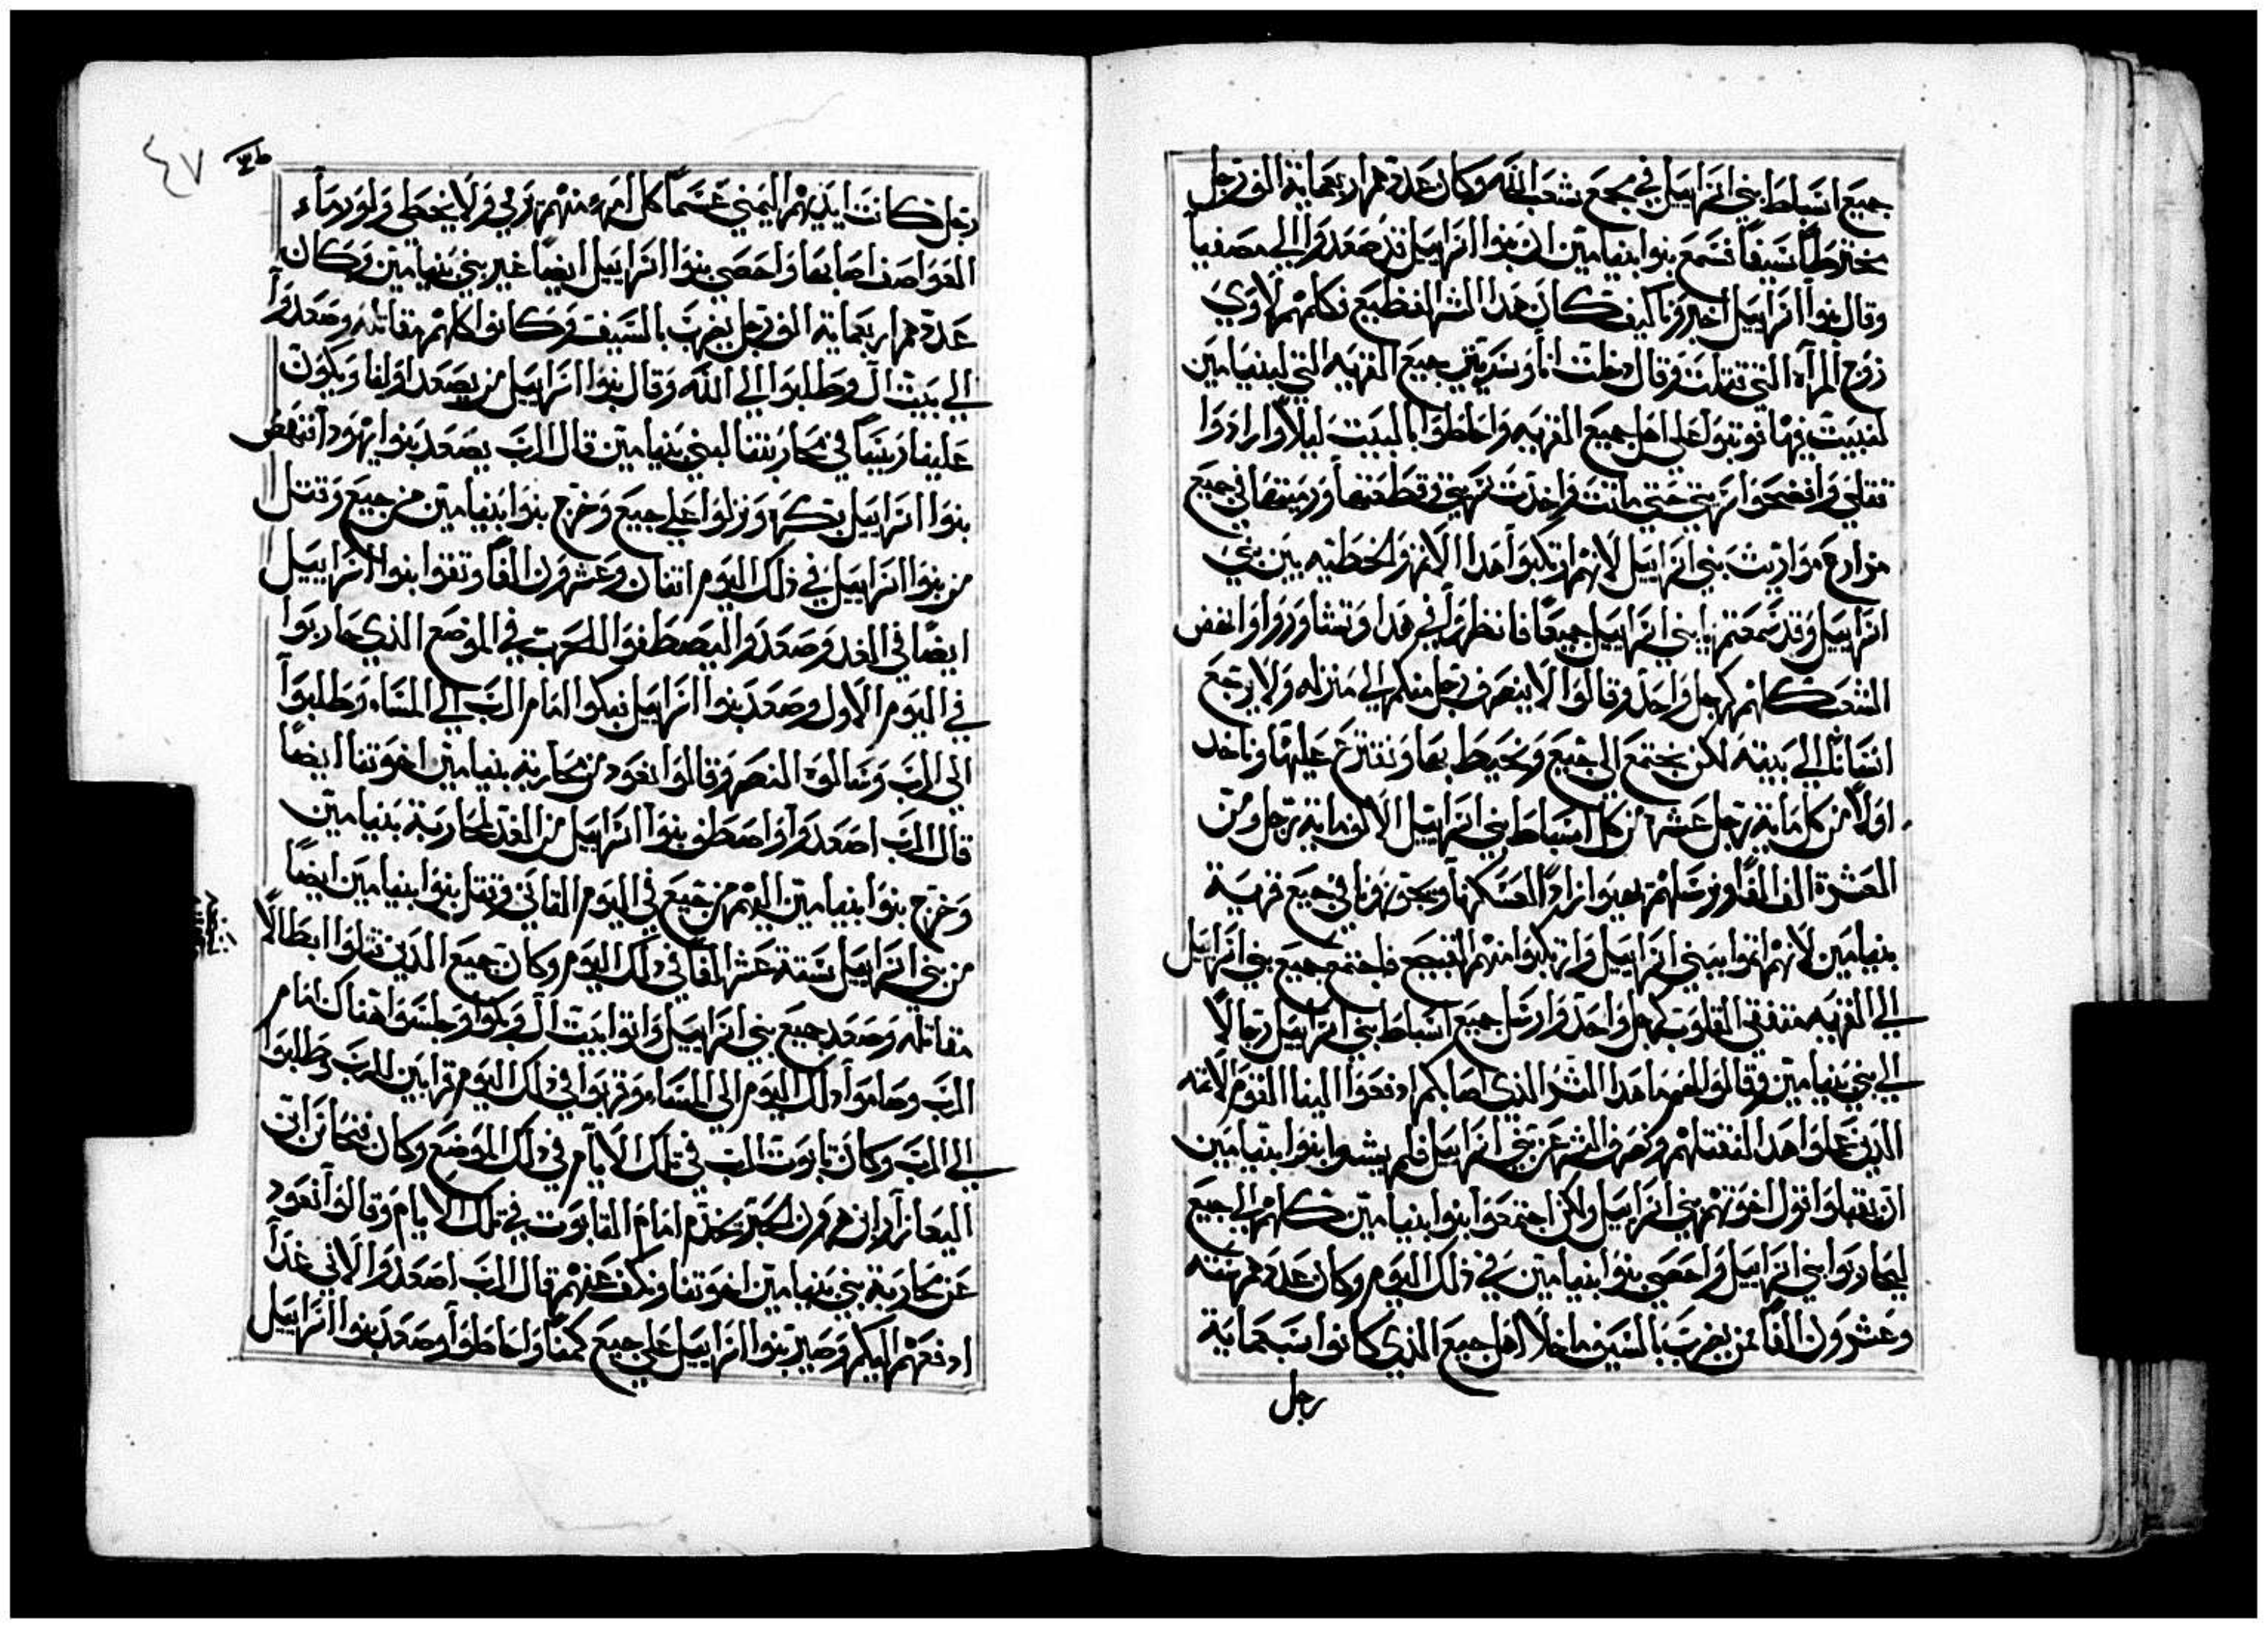 جميع اسباط بني اسراييل في مجمع شعب الله وكان عددهم اربعماية الف رجل
مخترطاً سيفاً فسمع بنوا بنيامين ان بنوا اسراييل قد صعدوا الي مصفيا
وقال بنوا اسراييل اخبرونا كيف كان هدا الشر الفظيع فكلمهم لاوي
زوج المراه التي قتلت وقال دخلت انا وسريتي جبع القريه التي لبنيامين
لنبيت فيها فوتبوا علي اهل جبع القريه واحاطوا بالبيت ليلاً وارادوا
قتلي وافضحوا سريتي حتي ماتت فاخدت سريتي وقطعتها ورميتها في جميع
مزارع مواريث بني اسراييل لانهم ارتكبوا هدا الاثم والخطيه بين بني
اسراييل وقد سمعتم يا بني اسراييل جميعاً فانظروا في هدا وتشاوروا وانهض
الشعب كلهم كرجل واحد وقالوا لا ينصرف رجل منكم الي منزله ولا يرجع
انسان الي بيته لكن نجتمع الي جبع ونحيط بها ونقترع عليها وناخد
اولاً من كل ماية رجل عشره من كل اسباط بني اسراييل الالف ماية رجل ومن
العشرة الف الفاً ونرسلهم يهيوا زاد العسكرنا ويجوزونا في جبع قرية
بنيامين لانهم اثموا ببني اسراييل وارتكبوا منهم القبيح فاجتمع جميع بني اسراييل
الي القريه متفقي القلوب كرجل واحد وارسل جميع اسباط بني اسراييل رجالاً
الي بني بنيامين وقالوا لهم ما هدا الشر الذي اصابكم ادفعوا الينا القوم الاثمه
الدين عملوا هدا لنقتلهم ونصرف الشر عن بني اسراييل فلم يشوا بنوا بنيامين
ان يقبلوا قول اخوتهم بني اسراييل ولكن اجتمعوا بنوا بنيامين كلهم الي جبع
ليحاربوا بني اسراييل واحصي بنوا بنيامين في ذلك اليوم وكان عددهم سته
وعشرون الفاً ممن يضرب بالسيف ما خلا اهل جبع الذي كانوا سبعماية
رجل
٤٧
رجل كانت ايديهم اليمني عسماً كل امرء منهم يرمي ولا يخطي ولو رماء
العواصف اصابها واحصي بنوا اسراييل ايضاً غير بني بنيامين وكان
عددهم اربعماية الف رجل يضرب بالسيف وكانوا كلهم مقاتله وصعدوا
الي بيت ال وطلبوا الي الله وقال بنوا اسراييل من يصعد اولاً ويكون
علينا ريساً في محاربتنا لبني بنيامين قال الرب يصعد بنوا يهودا فنهض
بنوا اسراييل بكره ونزلوا علي جبع وخرج بنوا بنيامين من جبع وقتل
من بنوا اسراييل في ذلك اليوم اثنان وعشرون الفاً وتقوا بنوا اسراييل
ايضاً في الغد وصعدوا ليصطفوا للحرب في الموضع الذي حاربوا
في اليوم الاول وصعد بنوا اسراييل فبكوا امام الرب الي المساء وطلبوا
الي الرب وسالوه النصر وقالوا نعود من محاربة بنيامين اخوتنا ايضاً
قال الرب اصعدوا واصطف بنوا اسراييل من الغد لمحاربة بنيامين
وخرج بنوا بنيامين اليهم من جبع في اليوم التاني وقتل بنوا بنيامين ايضاً
من بني اسراييل ستة عشر الفاً في دلك اليوم وكان جميع الدين قتلوا ابطالاً
مقاتله وصعد جميع بني اسراييل واتوا بيت ال وبكوا وجلسوا هناك امام
الرب وصاموا دلك اليوم الي المساء وقربوا في دلك اليوم قرابين للرب وطلبوا
الي الرب وكان تابوت الرب في تلك الايام في دلك الموضع وكان فنحاس ابن
اليعازار ابن هرون الحبر يخدم امام التابوت في تلك الايام وقالوا نعود
عن محاربة بني بنيامين اخوتنا ونكف عنهم قال الرب اصعدوا لاني غداً
ادفعهم اليكم وصير بنوا اسراييل علي جبع كمناً واحاطوا وصعد بنوا اسراييل